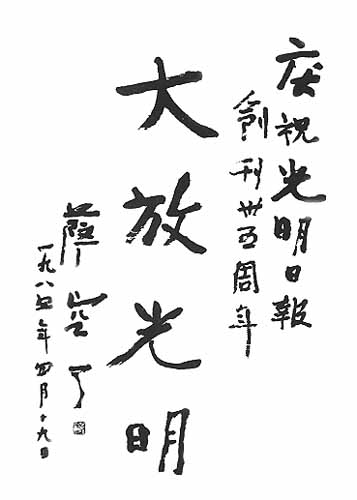 庆祝光明日報
創刊卅五周年
大放光明
薩空了
一九八四年四月十九日